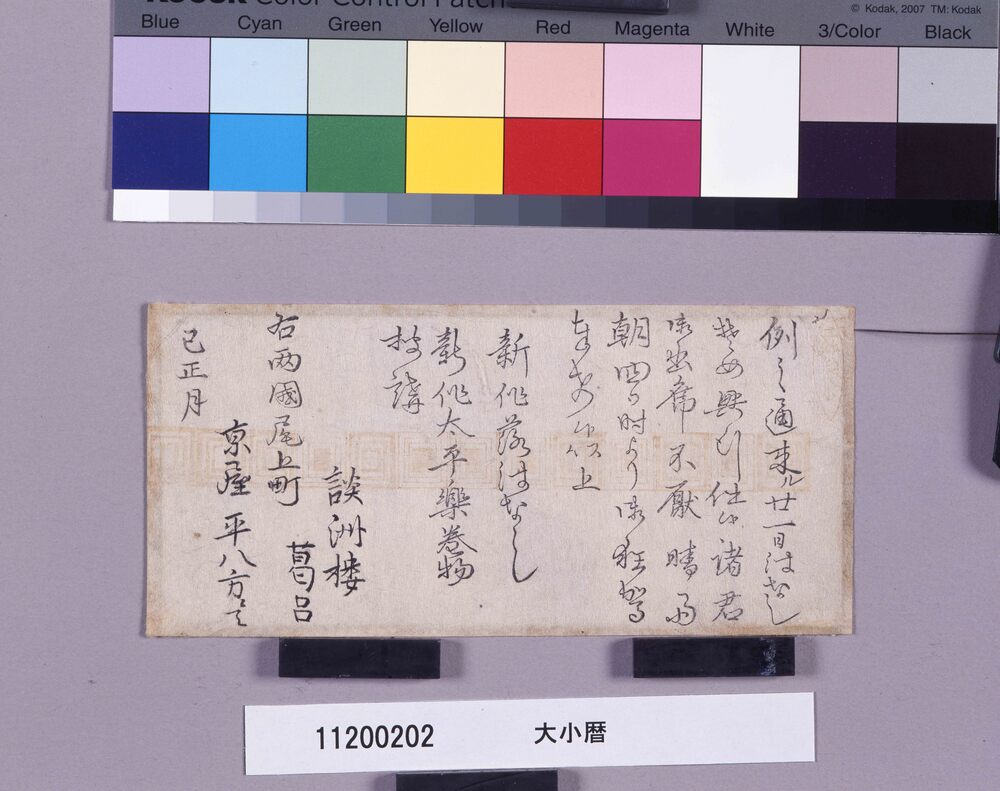 KODAK Color Control Patch
© Kodak, 2007 TM: Kodak
Blue Cyan Green Yellow Red Magenta White 3/Color Black
例之通来ル廿一日はなし
興行仕候諸君
御出席不厭晴雨
朝四ツ時より御狂駕
奉希候以上
新作落はなし
新作太平楽巻物
披講
談洲楼
右両國尾上町
葛呂
京屋平八方ニて
巳正月
11200202 大小暦